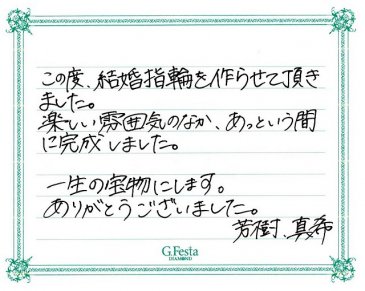 この度、結婚指輪を作らせて頂き
ました。
楽しい雰囲気のなか、あっという間
に完成しました。
一生の宝物にします。
ありがとうございました。
芳樹、真希
G.Festa
DIAMOND